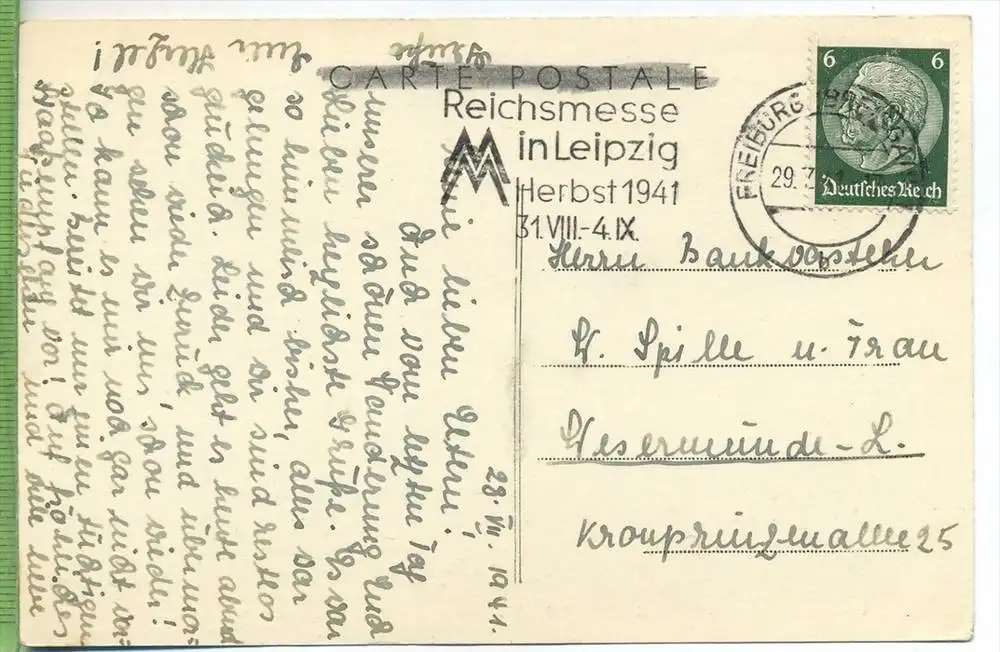 CARTE POSTALE
Reichsmesse
in Leipzig
Herbst 1941
31.VIII.-4.IX.
FREIBURG (BREISGAU)
29.7
b
6 6
Deutsches Reich
Herrn Bankvorsteher
W. Spille u. Frau
Wesermünde-L.
Kronprinzenallee 25
28. VII. 1941.
Meine lieben Eltern!
Auch vom letzten Tag
unserer schönen Wanderung Euch
Lieben herzlichste Grüße. Es war
so himmlisch bisher, alles war
gelungen und wir sind restlos
glücklich. Leider geht es heute abend
schon wieder zurück, und übermor-
gen sehen wir uns schon wieder!
Ich kann es mir noch gar nicht vor-
stellen. Bereitet nur einen tüchtigen
Auf fröhliches
und viele liebe
Grüße
Herzel!